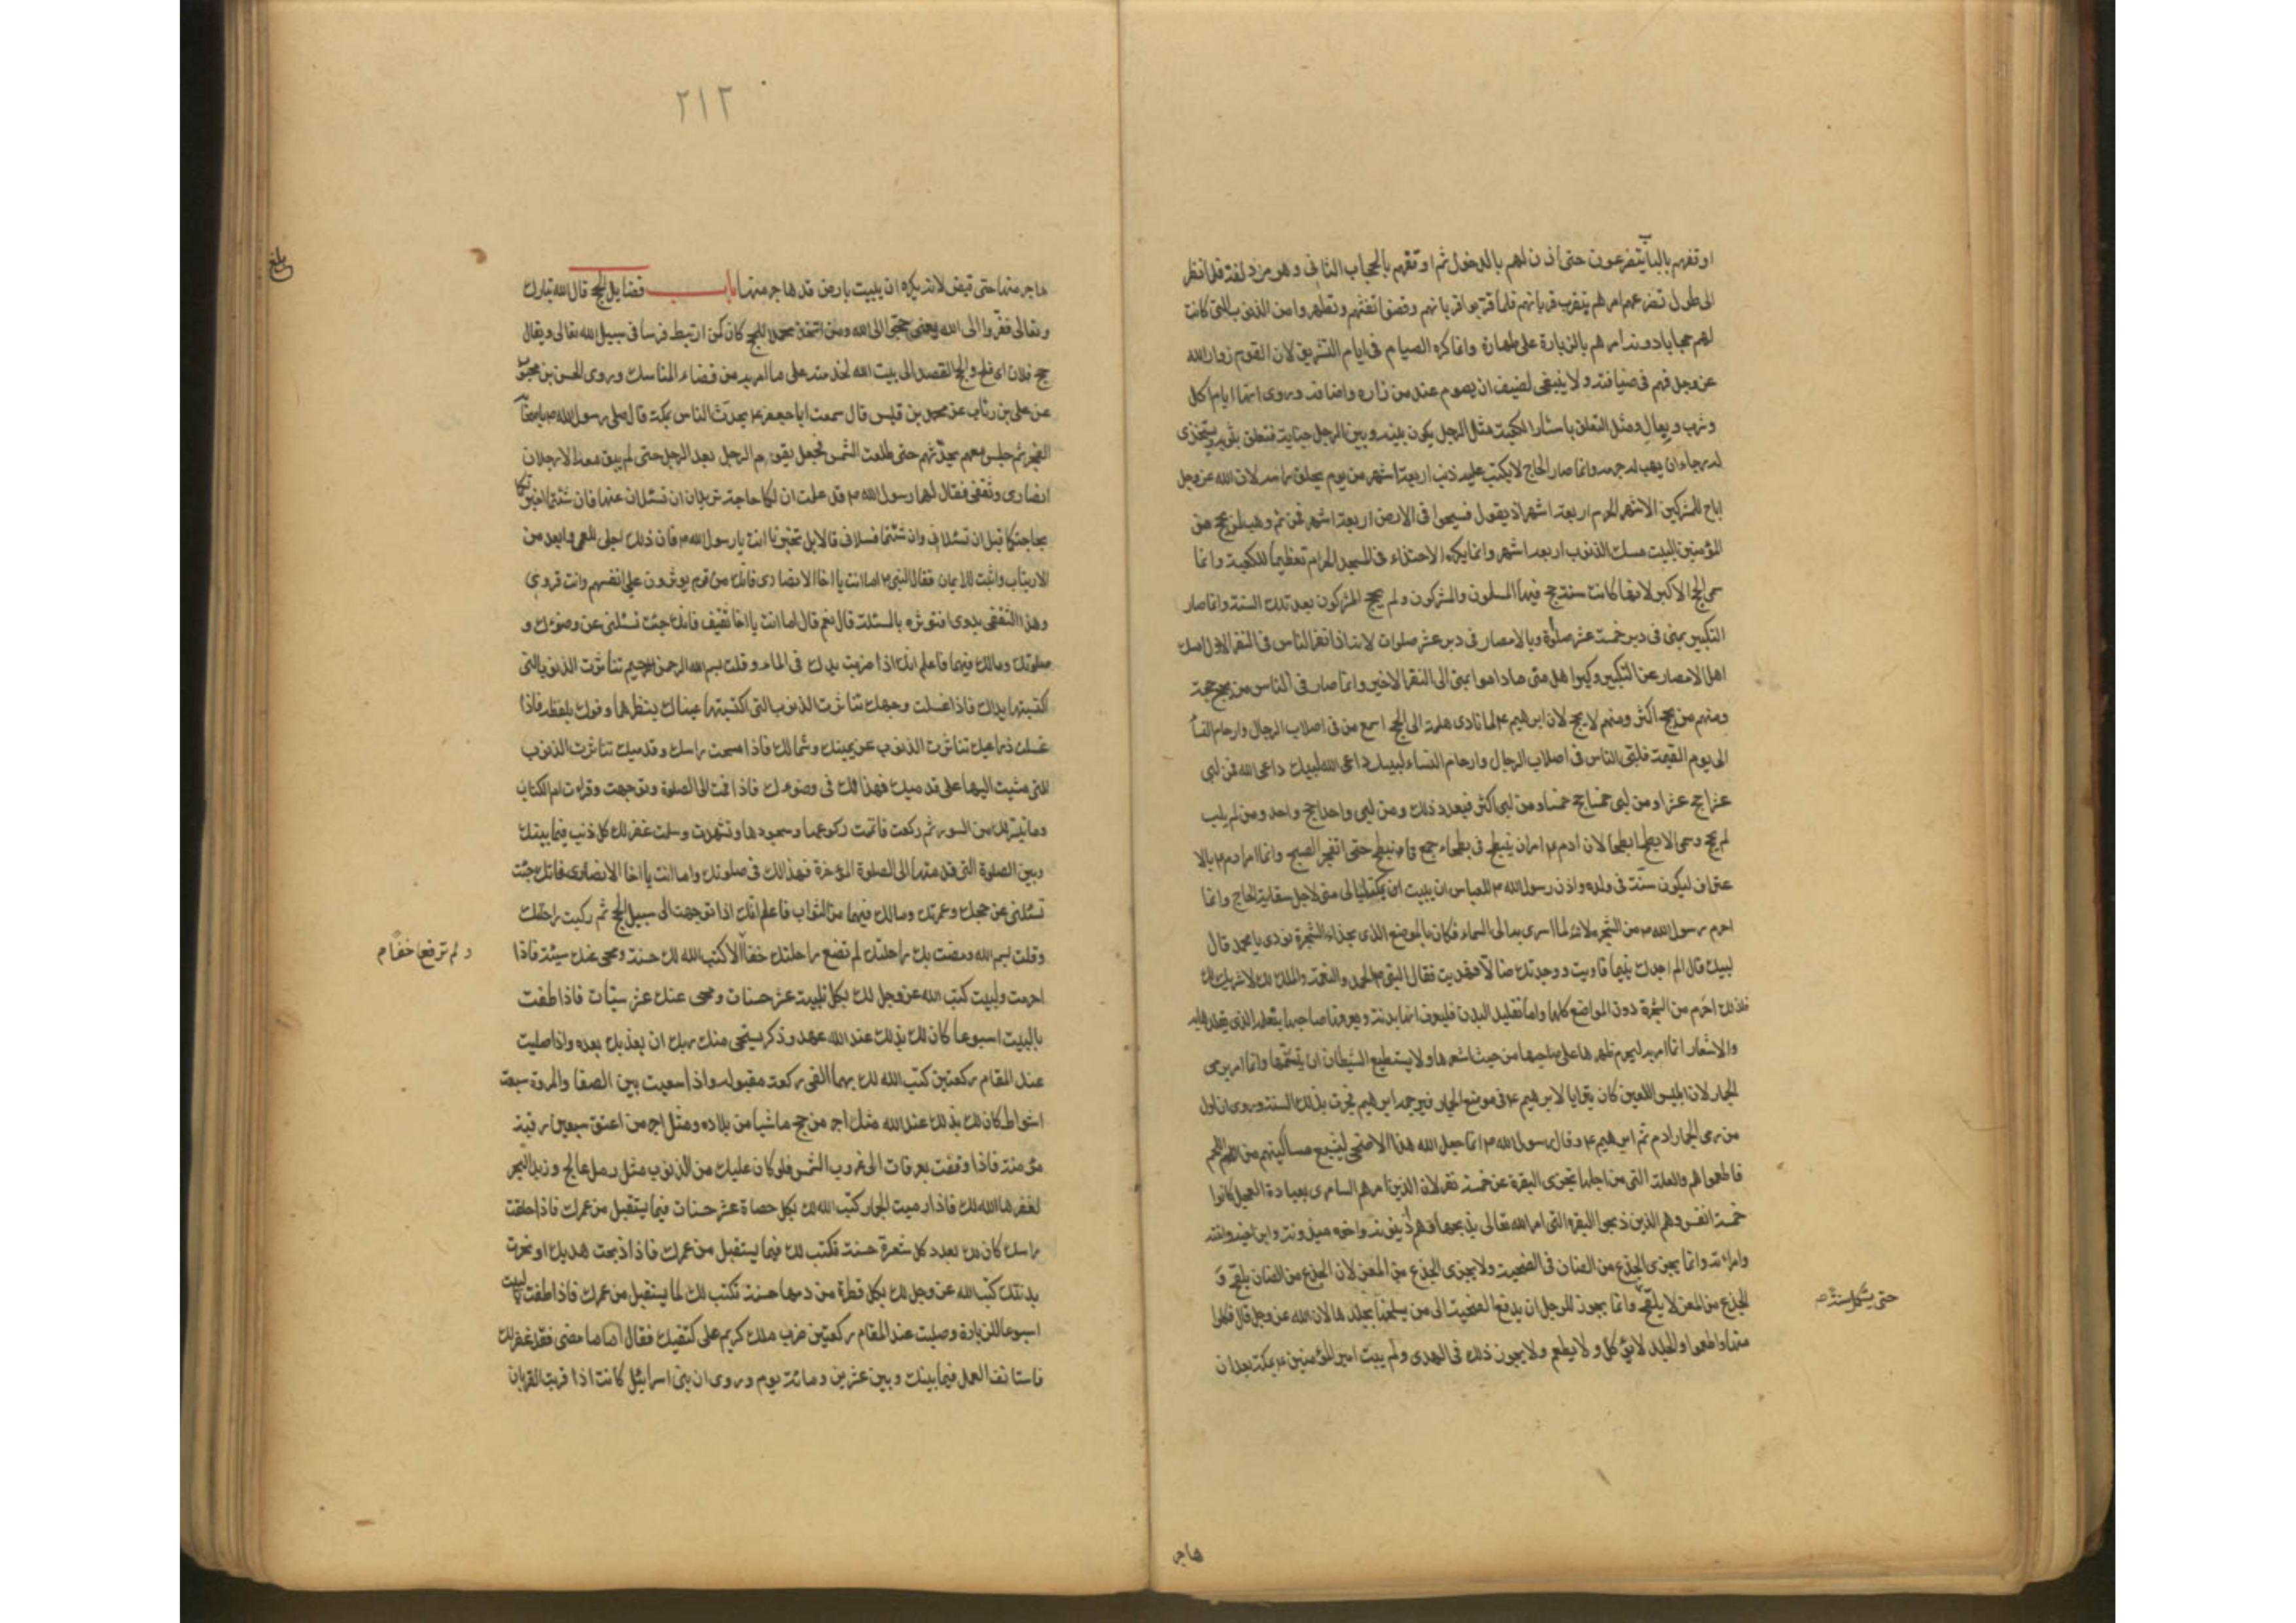 اوقفهم بالباب يتضرعون حتى اذن لهم بالدخول ثم اوقفهم بالحجاب الثانى وهو مزدلفة فلما نظر
الى طول تضرعهم امرهم بتقرب قربانهم فلما قربوا قربانهم وقضوا تفثهم وتطهروا من الذنوب التى كانت
لهم حجابا دونه امرهم بالزيارة على طهارة وانما كره الصيام فى ايام التشريق لان القوم زوار الله
عز وجل فهم فى ضيافته ولا ينبغى لضيف ان يصوم عند من زاره واضافه وروى انها ايام اكل
وشرب وبعال ومثل التعلق باستار الكعبة مثل الرجل يكون بينه وبين الرجل جناية فتعلق بثوبه يستخذى
له رجاء ان يهب له جرمه وانما صار الحاج لا يكتب عليه ذنب اربعة اشهر من يوم يحلق راسه لان الله عز وجل
اباح للمشركين الاشهر الحرم اربعة اشهر اذ يقول فسيحوا فى الارض اربعة اشهر فمن ثم وهب لمن يحج من
المؤمنين البيت مسك الذنوب اربعة اشهر وانما يكره الاحتباء فى المسجد الحرام تعظيما للكعبة وانما
سمى الحج الاكبر لانها كانت سنة حج فيها المسلمون والمشركون ولم يحج المشركون بعد تلك السنة وانما صار
التكبير بمنى فى دبر خمسة عشر صلوة وبالامصار فى دبر عشر صلوات لانه اذا نفر الناس فى النفر الاول امسك
اهل الامصار عن التكبير وكبر اهل منى ماداموا بمنى الى النفر الاخير وانما صار فى الناس من يحج حجة
ومنهم من يحج اكثر ومنهم لا يحج لان ابرهيم ع لما نادى هلم الى الحج اسمع من فى اصلاب الرجال وارحام النسا
الى يوم القيمة فلبى الناس فى اصلاب الرجال وارحام النساء لبيك داعى الله لبيك داعى الله فمن لبى
عشرا حج عشرا ومن لبى خمسا حج خمسا ومن لبى اكثر فبعدد ذلك ومن لبى واحدا حج واحدا ومن لم يلب
لم يحج وسمى الابطح ابطحا لان ادم ع امر ان ينبطح فى بطحاء جمع فانبطح حتى انفجر الصبح وانما امر ادم ع بالا
عتراف ليكون سنة فى ولده واذن رسول الله ص للعباس ان يبيت بمكة ليالى منى لاجل سقاية الحاج وانما
احرم رسول الله ص من الشجرة لانه لما اسرى به الى السماء فكان بالموضع الذى بحذاء الشجرة نودى يا محمد قال
لبيك قال الم اجدك يتيما فاويت ووجدتك ضالا فهديت فقال النبى ص الحمد والنعمة والملك لك لا شريك لك
فلذلك احرم من الشجرة دون المواضع كلها واما تقليد البدن فليعرف انها بدنة ويعرفها صاحبها بنعله الذى يقلدها به
والاشعار انما امر به ليحرم ظهرها على صاحبها من حيث اشعرها ولا يستطيع الشيطان ان يتسنمها وانما امر برمى
الجمار لان ابليس اللعين كان يترايا لابرهيم ع فى موضع الجمار فيرجمه ابرهيم فجرت بذلك السنة وروى ان اول
من رمى الجمار ادم ثم ابرهيم ع وقال رسول الله ص انما جعل الله هذا الاضحى ليشبع مساكينهم من اللحم
فاطعموهم والعلة التى من اجلها تجزى البقرة عن خمسة نفر لان الذين امرهم السامرى بعبادة العجل كانوا
خمسة انفس وهم الذين ذبحوا البقرة التى امر الله تعالى بذبحها وهم اذينونة واخوه ميذونة وابن اخيه وابنته
وامراته وانما يجزى الجذع من الضان فى الضحية ولا يجزى الجذع من المعز لان الجذع من الضان يلقح و
الجذع من المعز لا يلقح وانما يجوز للرجل ان يدفع الضحية الى من يسلخها بجلدها لان الله عز وجل قال فكلوا
حتى يستكمل سنة م
منها واطعموا والجلد لا يؤكل ولا يطعم ولا يجوز ذلك فى الهدى ولم يبت امير المؤمنين ع بمكة بعد ان
هاجر
٢١٢
بلغ
هاجر منها حتى قبض لانه يكره ان يبيت بارض قد هاجر منها باب فضايل الحج قال الله تبارك
وتعالى ففروا الى الله يعنى حجوا الى الله ومن اتخذ محملا للحج كان كمن ارتبط فرسا فى سبيل الله تعالى ويقال
حج فلان اى فلح والحج القصد الى بيت الله لخدمته على ما امر به من قضاء المناسك وروى الحسن بن محبوب
عن على بن رئاب عن محمد بن قيس قال سمعت ابا جعفر ع يحدث الناس بمكة قال صلى رسول الله ص باصحابه
الفجر ثم جلس معهم يحدثهم حتى طلعت الشمس فجعل يقوم الرجل بعد الرجل حتى لم يبق معه الا رجلان
انصارى وثقفى فقال لهما رسول الله ص قد علمت ان لكما حاجة تريدان ان تسئلان عنها فان شئتما اخبرتكما
بحاجتكما قبل ان تسئلانى وان شئتما فسلانى قالا بل تخبرنا انت يا رسول الله ص فان ذلك اجلى للعمى وابعد من
الارتياب واثبت للايمان فقال النبى ص اما انت يا اخا الانصارى فانك من قوم يوثرون على انفسهم وانت قروى
وهذا الثقفى بدوى افتوثره بالمسئلة قال نعم قال اما انت يا اخا ثقيف فانك جئت تسئلنى عن وضوءك و
صلوتك ومالك فيهما فاعلم انك اذا ضربت يدك فى الماء وقلت بسم الله الرحمن الرحيم تناثرت الذنوب التى
اكتسبتها يداك فاذا غسلت وجهك تناثرت الذنوب التى اكتسبتها عيناك بنظرها وفوك بلفظه فاذا
غسلت ذراعيك تناثرت الذنوب عن يمينك وشمالك فاذا مسحت راسك وقدميك تناثرت الذنوب
التى مشيت اليها على قدميك فهذا لك فى وضوءك فاذا قمت الى الصلوة وتوجهت وقرات ام الكتاب
وما تيسر لك من السور ثم ركعت فاتممت ركوعها وسجودها وتشهدت وسلمت غفر لك كل ذنب فيما بينك
وبين الصلوة التى قدمتها الى الصلوة المؤخرة فهذا لك فى صلوتك واما انت يا اخا الانصارى فانك جئت
تسئلنى عن حجك وعمرتك ومالك فيهما من الثواب فاعلم انك اذا توجهت الى سبيل الحج ثم ركبت راحلتك
وقلت بسم الله ومضت بك راحلتك لم تضع راحلتك خفا الا كتب الله لك حسنة ومحى عنك سيئة فاذا
ولم ترفع خفا م
احرمت ولبيت كتب الله عز وجل لك بكل تلبية عشر حسنات ومحى عنك عشر سيئات فاذا طفت
بالبيت اسبوعا كان لك بذلك عند الله عهد وذكر يستحى منك ربك ان يعذبك بعده واذا صليت
عند المقام ركعتين كتب الله لك بهما الفى ركعة مقبولة واذا سعيت بين الصفا والمروة سبعة
اشواط كان لك بذلك عند الله مثل اجر من حج ماشيا من بلاده ومثل اجر من اعتق سبعين رقبة
مؤمنة فاذا وقفت بعرفات الى غروب الشمس فلو كان عليك من الذنوب مثل رمل عالج وزبد البحر
لغفرها الله لك فاذا رميت الجمار كتب الله لك بكل حصاة عشر حسنات فيما يستقبل من عمرك فاذا حلقت
راسك كان لك بعدد كل شعرة حسنة تكتب لك فيما يستقبل من عمرك فاذا ذبحت هديك او نحرت
بدنتك كتب الله عز وجل لك بكل قطرة من دمها حسنة تكتب لك لما يستقبل من عمرك فاذا طفت بالبيت
اسبوعا للزيارة وصليت عند المقام ركعتين ضرب ملك كريم على كتفيك فقال اما ما مضى فقد غفر لك
فاستانف العمل فيما بينك وبين عشرين ومائة يوم وروى ان بنى اسرائيل كانت اذا قربت القربان